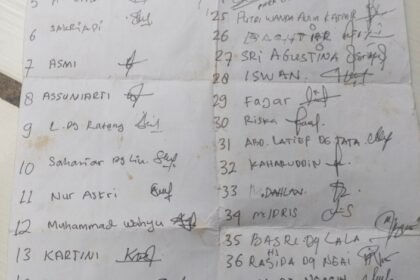 6 SAKRIADI
7 ASMI
8 ASSUNIARTI
9 L. Dg Rateng
10 Sahariar Dg Liu
11 Nur Askri
12 Muhammad Wahyu
13 KARTINI
25 PUTRI WANDA
26 BACHTIAR
27 SRI AGUSTINA
28 ISWAN
29 Fajar
30 Riska
31 ABD. LATIEF DG TATA
32 KAHARUDDIN
33 DAHLAN
34 M IDRIS
35 BASRI Dg LALA
36 Hj RASIDA Dg NGAI